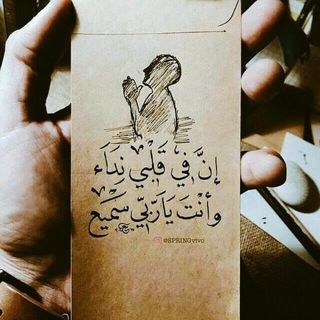 إنَّ في قَلْبي نِدَاء
وأنْتَ يَا رَبّي سَميع
@SPRINGvivo